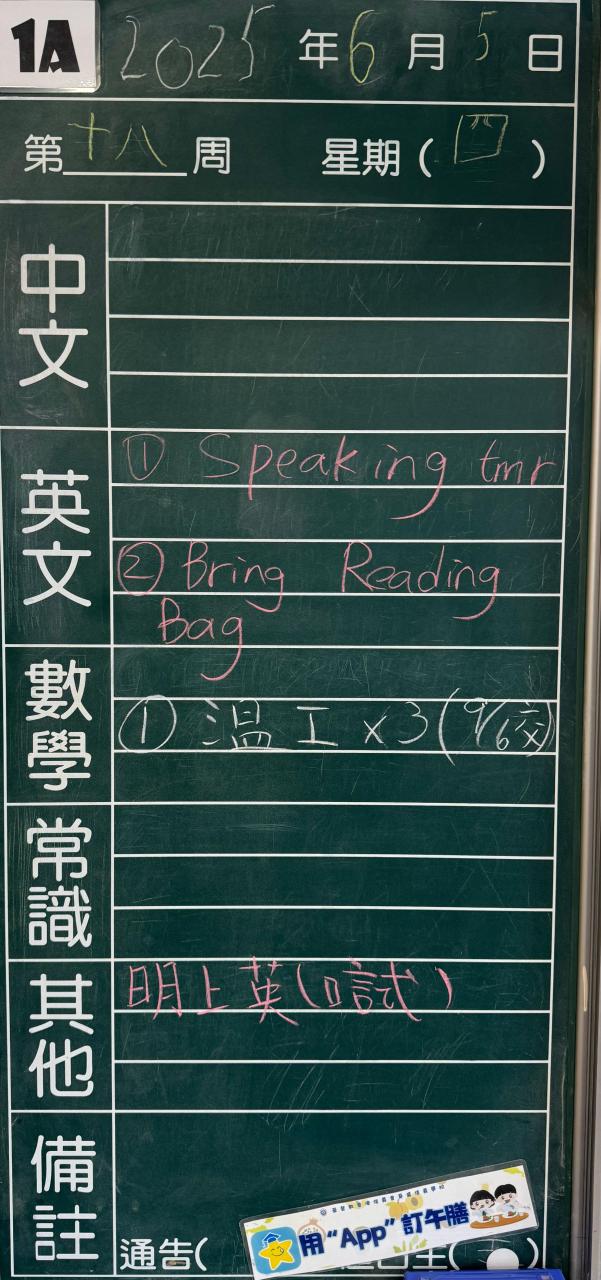 1A 2025年6月5日
第十八周 星期(四)
中文
英文
① Speaking tmr
② Bring Reading
Bag
數學
① 温工x3(9/6交)
常識
其他
明上英(口試)
備註
用“App”訂午膳
通告(